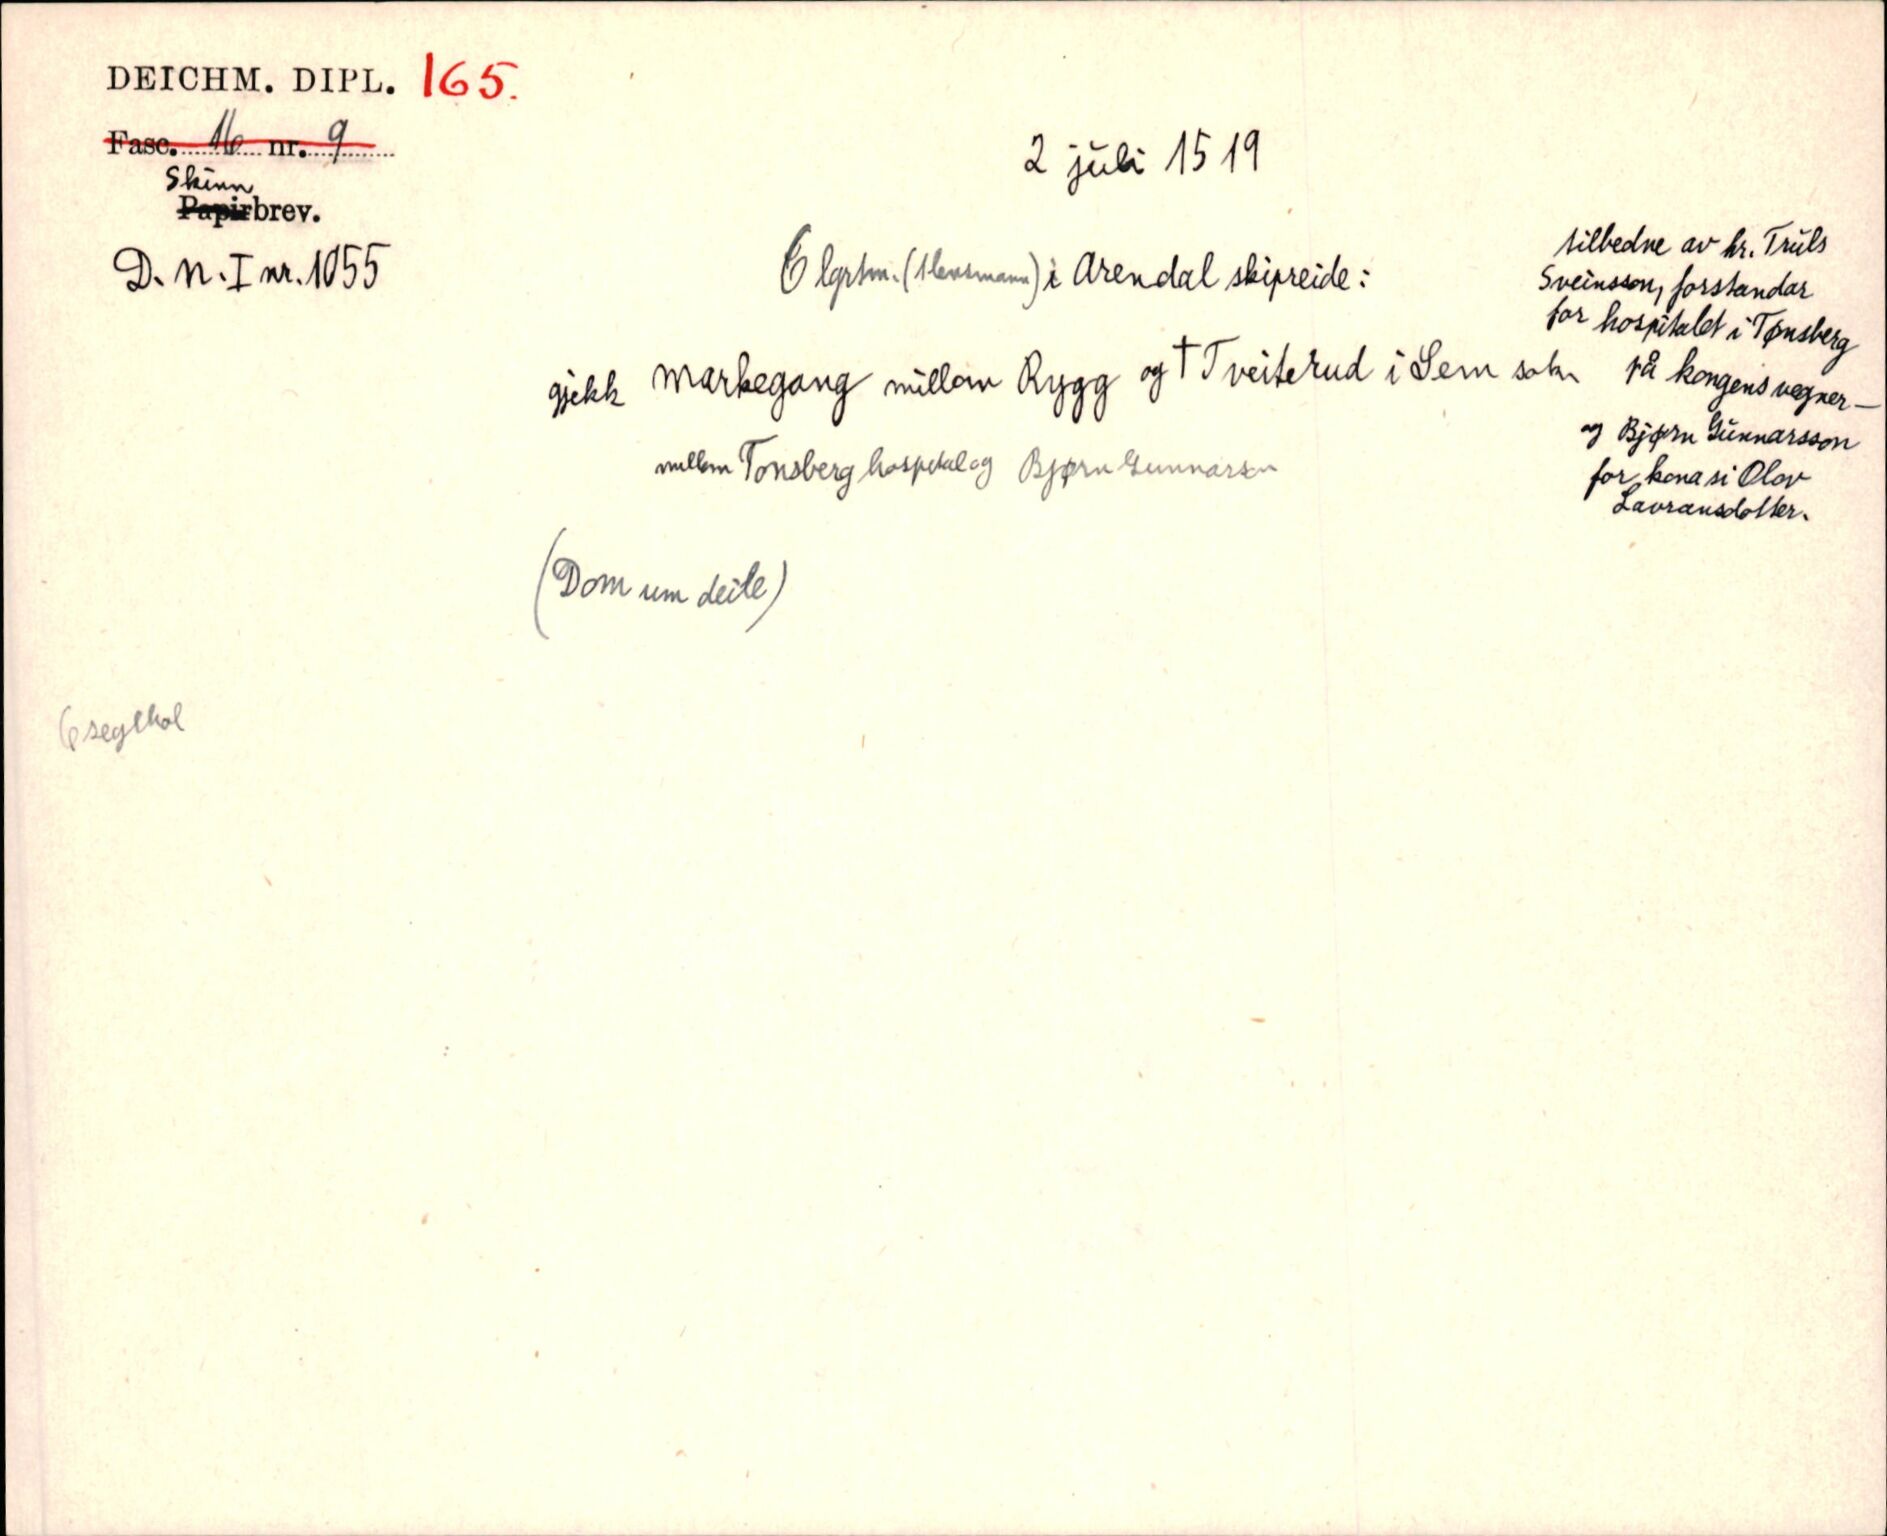 DEICHM. DIPL. 165.
Fasc. 16 nr. 9
Skinn
Papirbrev.
D. N. I nr. 1055
2 juli 1519
6 lgrtm. (1 lensmann) i Arendal skipreide:
gjekk markegang millom Rygg og † Tveiterud i Sem sokn
millom Tonsberg hospital og Bjørn Gunnarson
(Dom um deile)
tilbedne av hr. Truls
Sveinsson, forstandar
for hospitalet i Tønsberg
på kongens vegner —
og Bjørn Gunnarsson
for kona si Olov
Lavransdotter.
6 seglhol